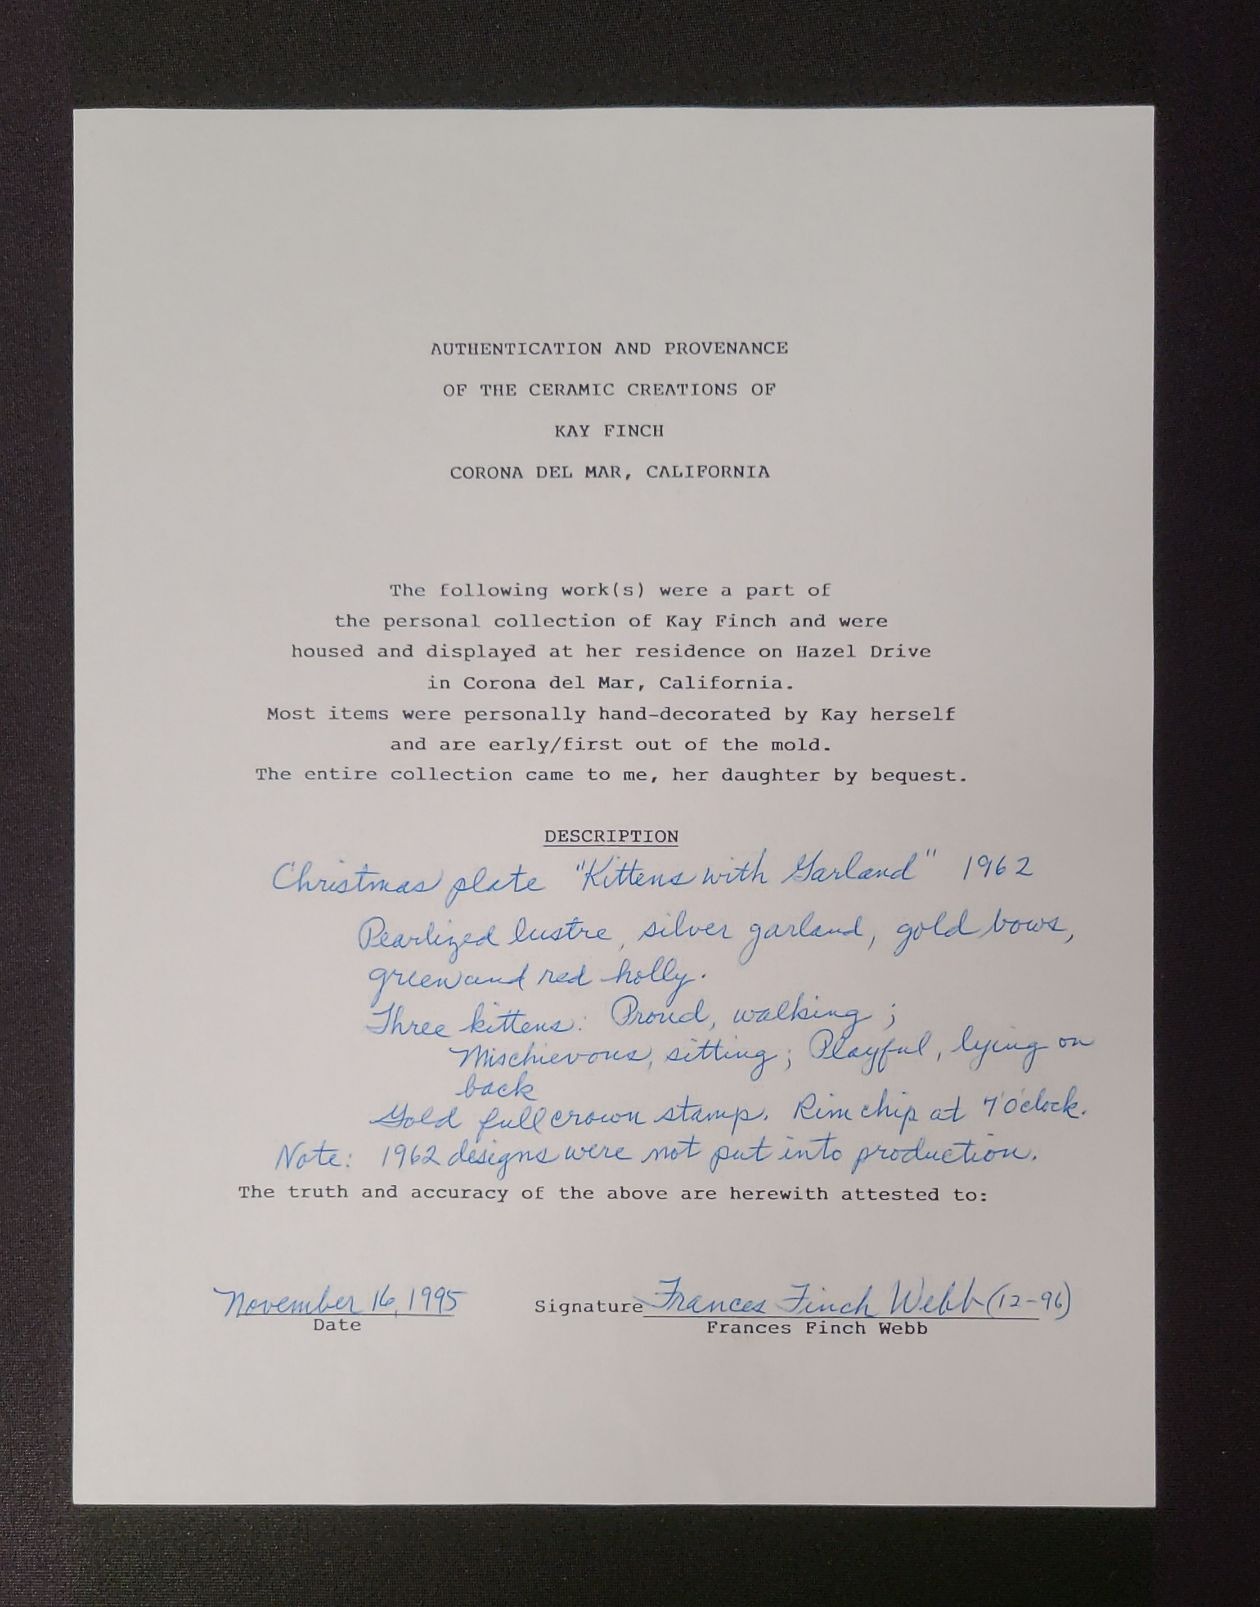 AUTHENTICATION AND PROVENANCE
OF THE CERAMIC CREATIONS OF
KAY FINCH
CORONA DEL MAR, CALIFORNIA
The following work(s) were a part of
the personal collection of Kay Finch and were
housed and displayed at her residence on Hazel Drive
in Corona del Mar, California.
Most items were personally hand-decorated by Kay herself
and are early/first out of the mold.
The entire collection came to me, her daughter by bequest.
DESCRIPTION
Christmas plate "Kittens with Garland" 1962
Pearlized lustre, silver garland, gold bows,
green and red holly.
Three kittens: Proud, walking;
Mischievous, sitting; Playful, lying on
back
Gold full crown stamp. Rim chip at 7 o'clock.
Note: 1962 designs were not put into production.
The truth and accuracy of the above are herewith attested to:
November 16, 1995 Signature Frances Finch Webb (12-96)
Date Frances Finch Webb